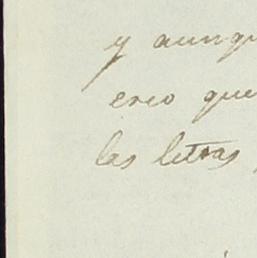 y aunqu
creo que
las letras